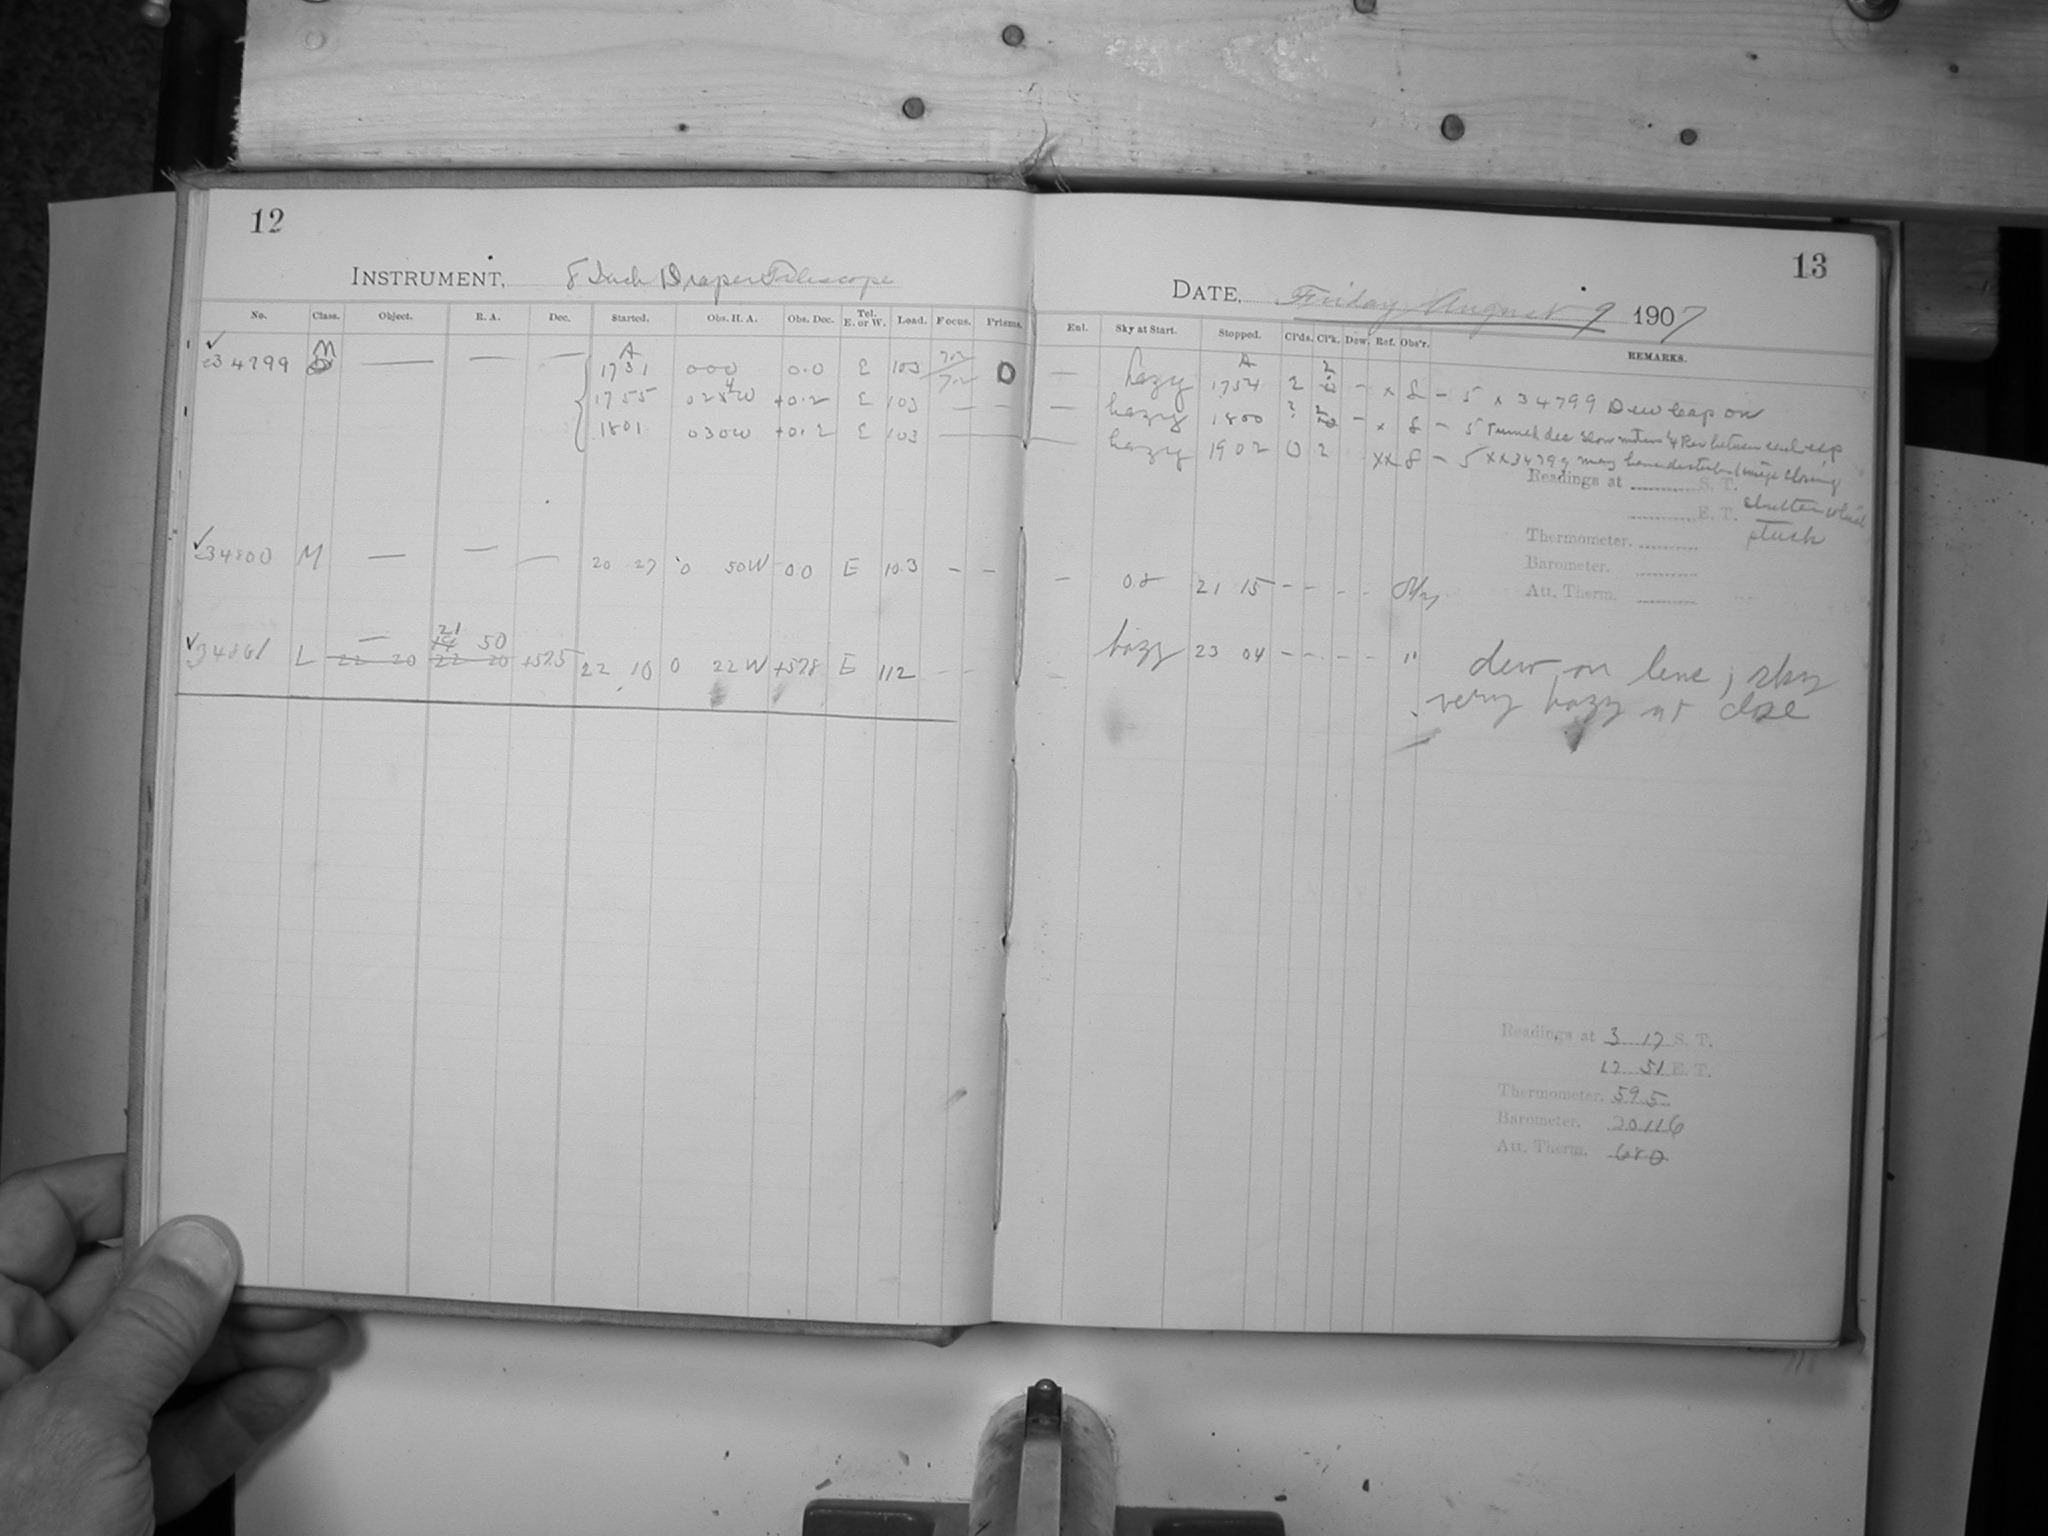 12
INSTRUMENT, 8 Inch Draper Telescope
No. Class. Object. R. A. Dec. Started. Obs. H. A. Obs. Dec. Tel. E. or W. Load. Focus. Prisms.
✓ 34799 M — — — A 1731 000 0.0 E 103 7.2 7.2 0
1755 024W +0.2 E 103 — —
1801 030W +0.2 E 103 — —
✓ 34800 M — — — 20 27 0 50W 0.0 E 10.3 – –
✓ 34801 L — 21 50 +57.5 22 10 0 22W +57.8 E 112 – –
22 20 22 20
13
DATE, Friday August 9 1907
Enl. Sky at Start. Stopped. Cl'ds. Cl'k. Dew. Ref. Obs'r. REMARKS.
— hazy A 1754 2 2 – x 8 – 5 x 34799 Dew cap on
— hazy 1800 2 2 – x 8 – 5 Turned dec slow motion 1/4 Rev between each exp
hazy 1902 0 2 xx 8 – 5 xx 34799 may have disturbed image closing
shutter which
stuck
Readings at S. T.
E. T.
Thermometer.
Barometer.
Att. Therm.
— 21 15 – – – –
hazy 23 04 – – – – " dew on lens ; sky
very hazy at close
Readings at 3 17 S. T.
17 51 E. T.
Thermometer. 59.5
Barometer. 30116
Att. Therm. 680